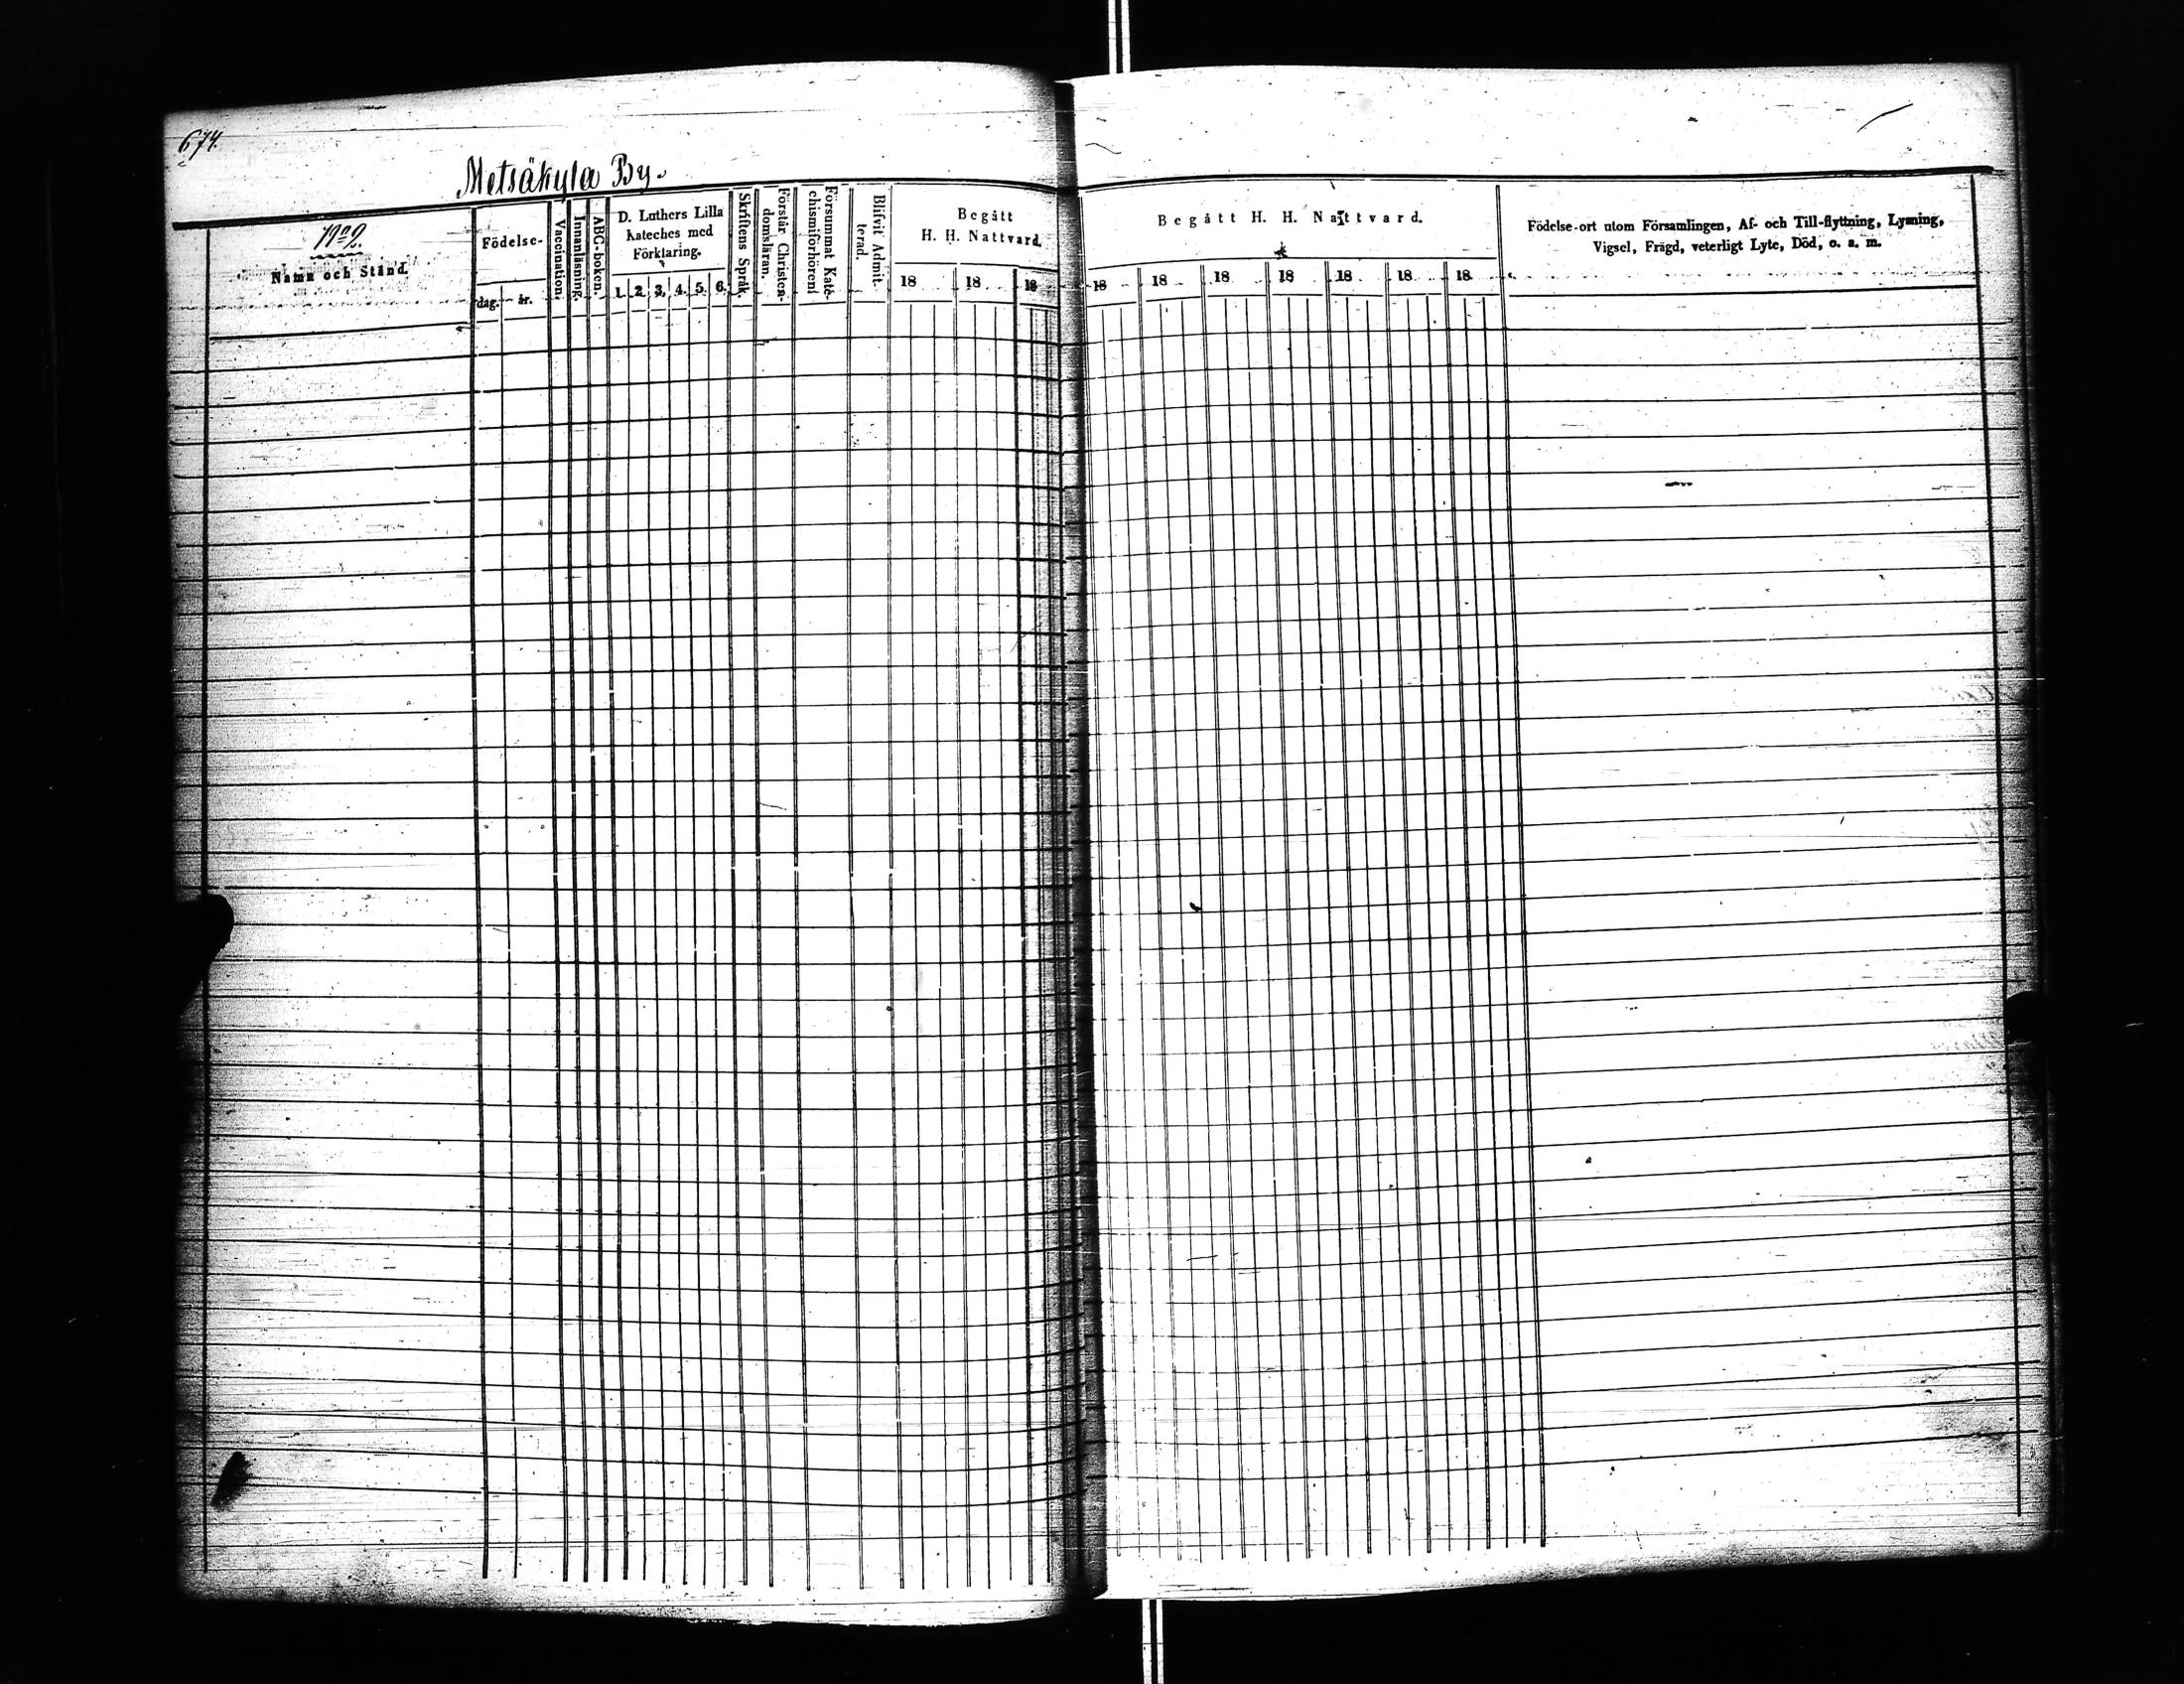 674.
Metsäkyla By.
No 2.
Namn och Stånd.
Födelse-
dag.
år.
Vaccination.
Innanläsning.
ABC-boken.
D. Luthers Lilla
Kateches med
Förklaring.
1. 2. 3. 4. 5. 6.
Skriftens Språk.
Förstår Christen-
domsläran.
Försummat Kate-
chismiförhören
Blifvit Admit-
terad.
Begått
H. H. Nattvard.
18 18 18
Begått H. H. Nattvard.
18 18 18 18 18 18 18
Födelse-ort utom Församlingen, Af- och Till-flyttning, Lysning,
Vigsel, Frägd, veterligt Lyte, Död, o. a. m.